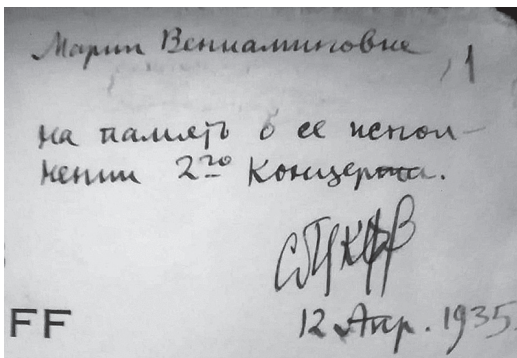 Марии Вениаминовне
на память о ее испол-
нении 2го Концерта.
СПРКФВ
12 Апр. 1935
FF